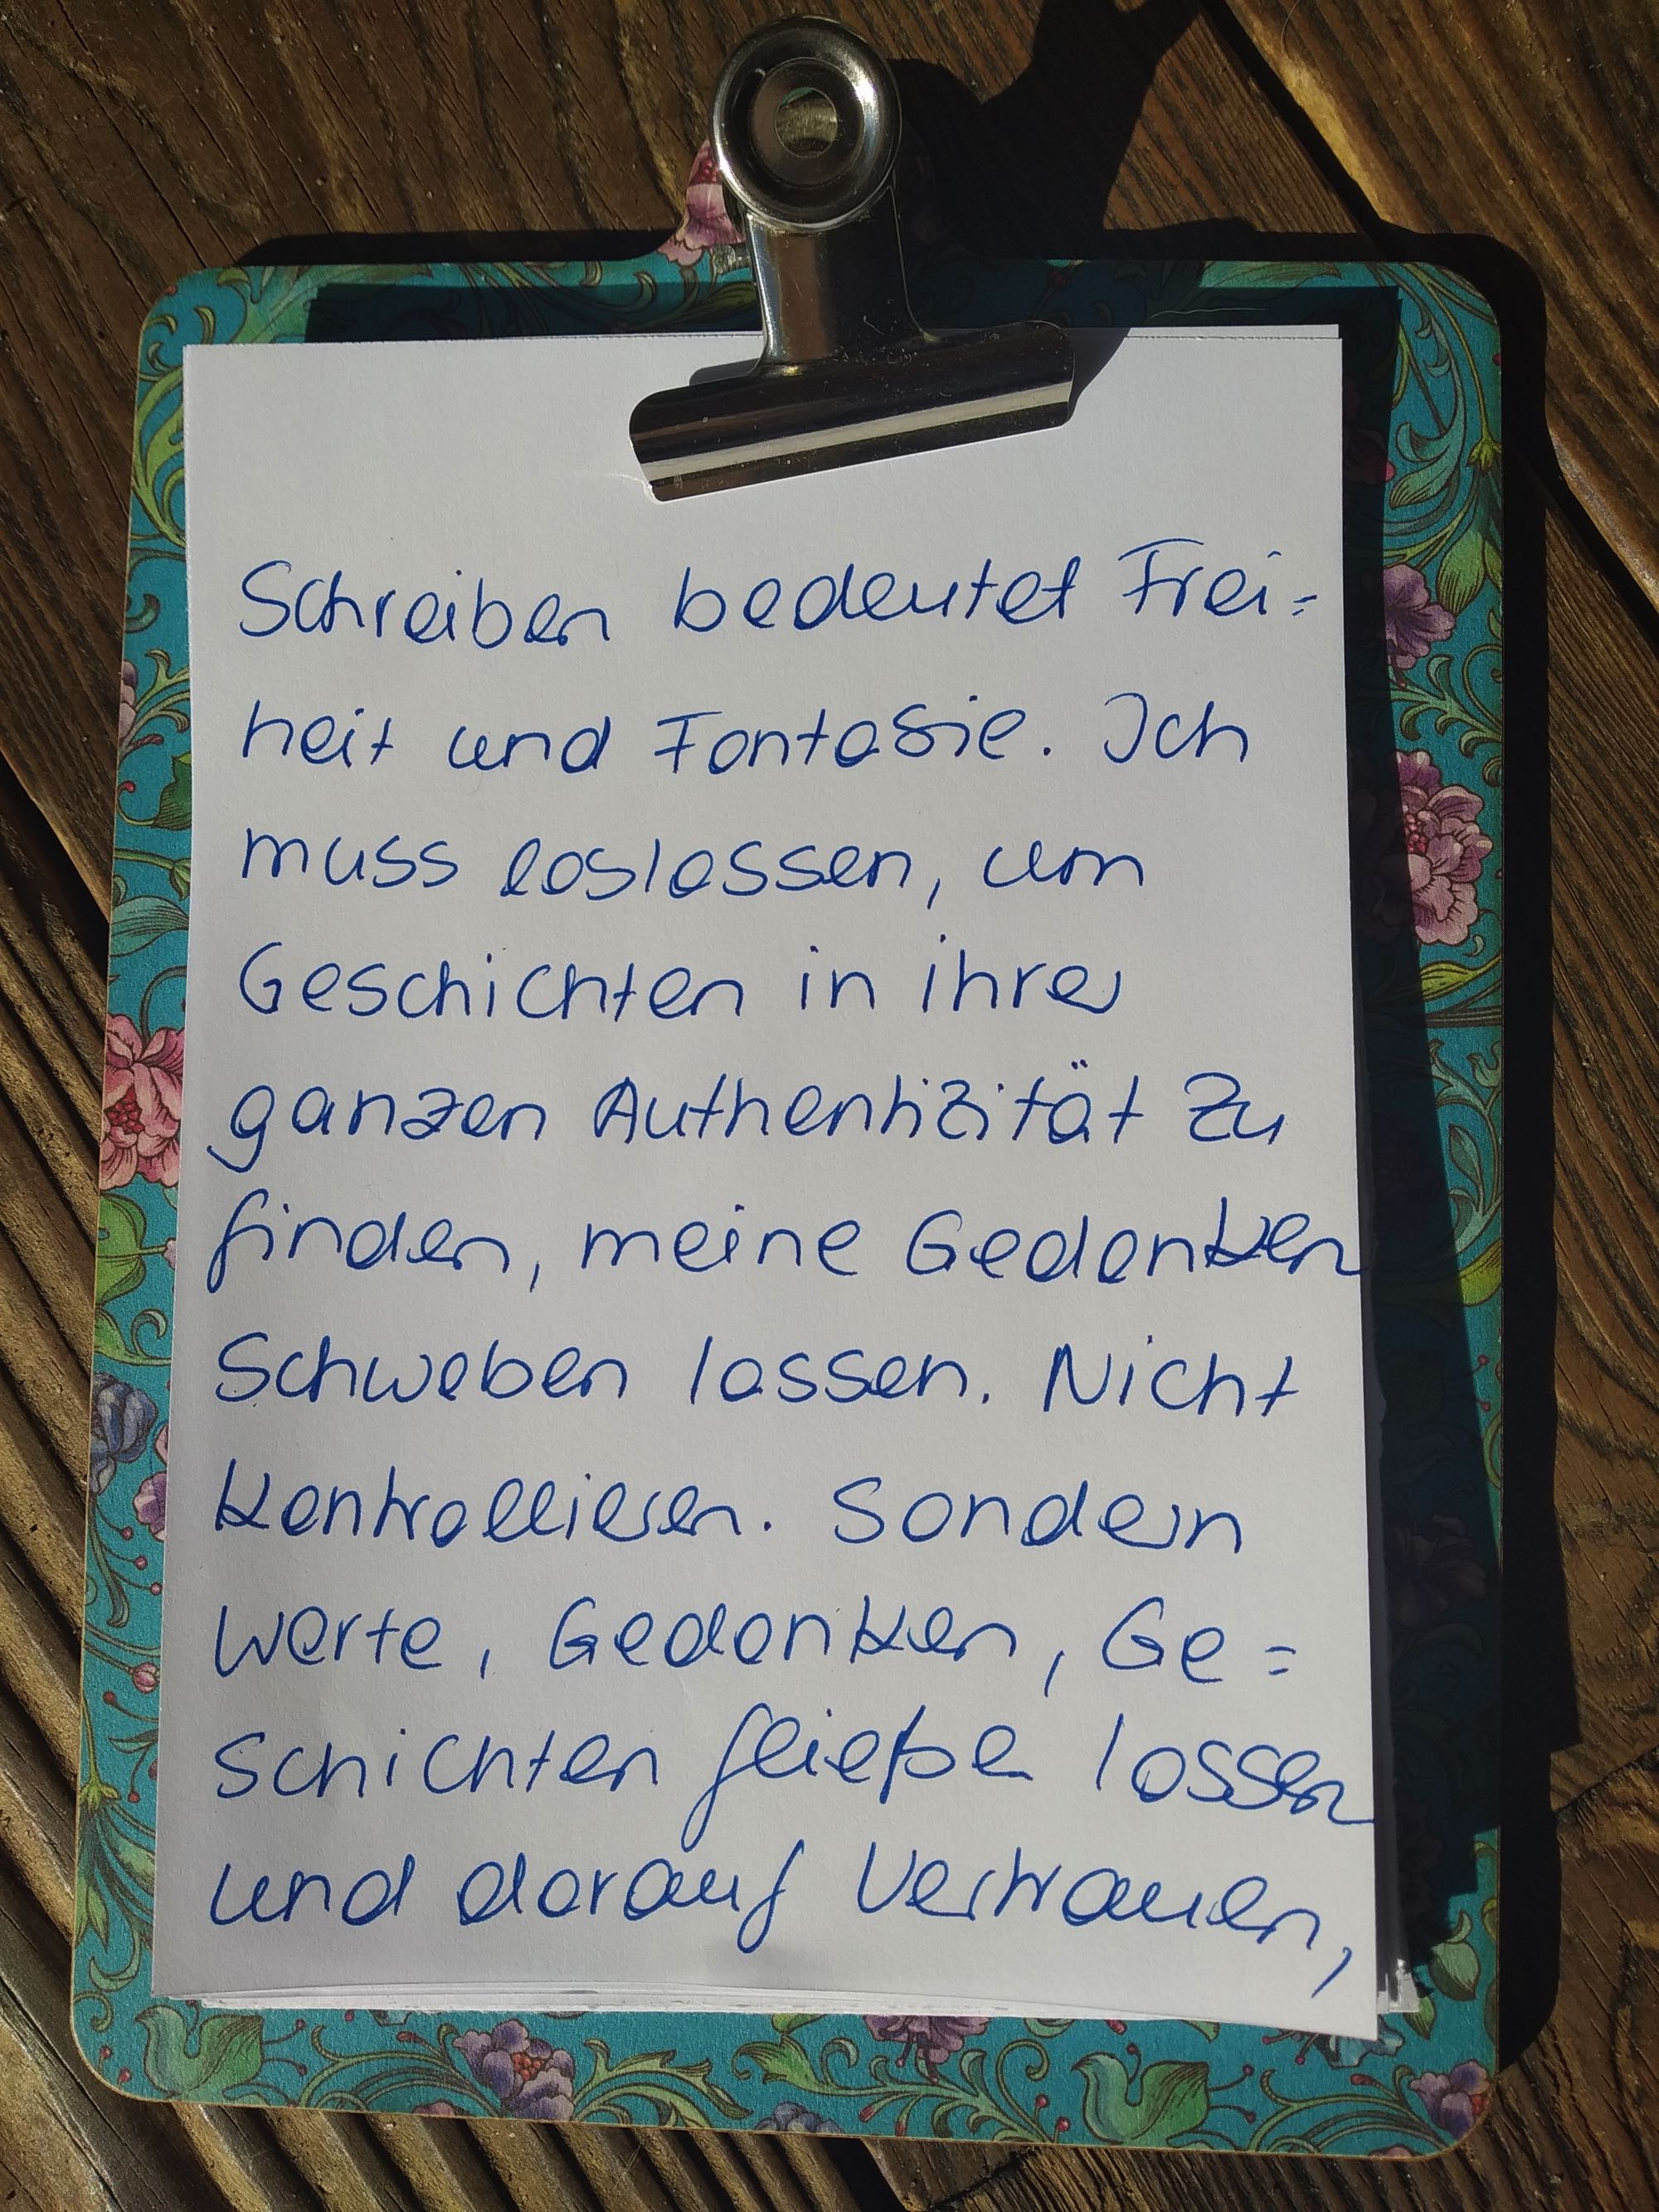 Schreiben bedeutet Frei=
heit und Fantasie. Ich
muss loslassen, um
Geschichten in ihrer
ganzen Authentizität zu
finden, meine Gedanken
schweben lassen. Nicht
kontrollieren. Sondern
Werte, Gedanken, Ge=
schichten fließe lassen
und darauf vertrauen,